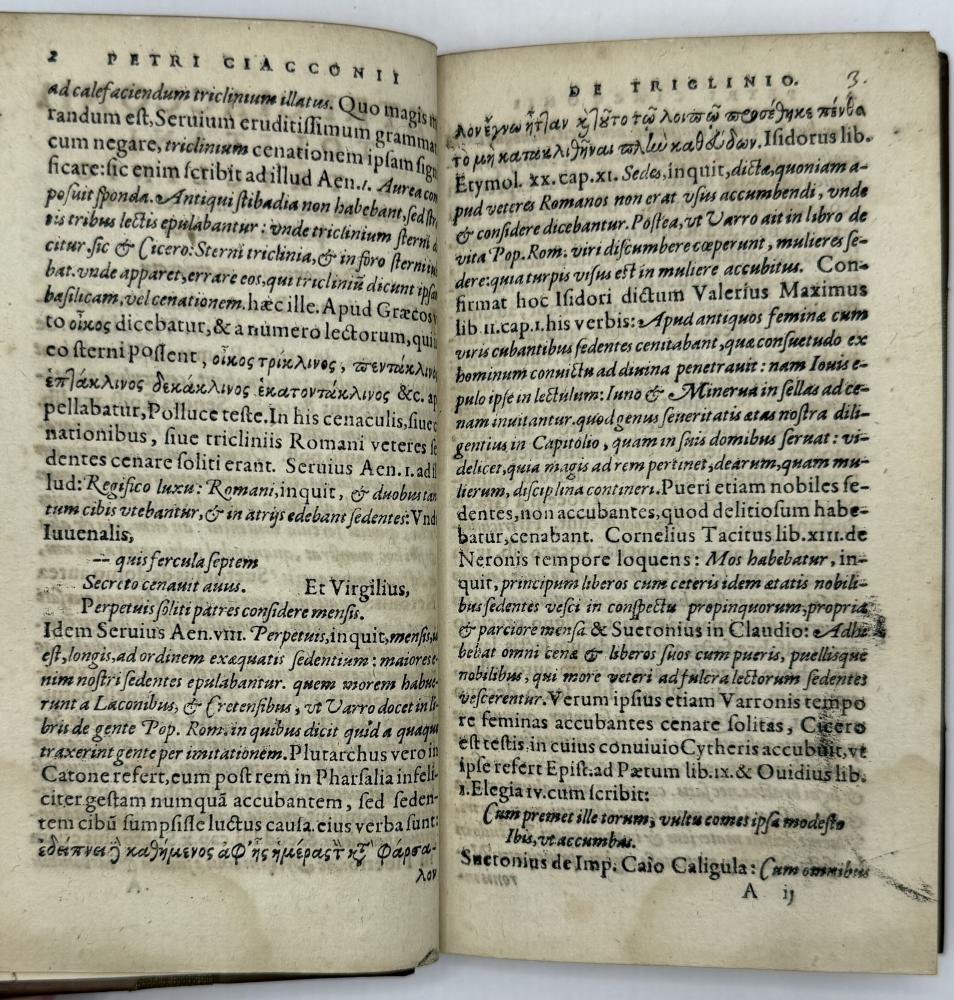 2 PETRI CIACCONII
ad calefaciendum triclinium illatus. Quo magis
randum eſt, Seruium eruditiſſimum grammat
cum negare, triclinium cenationem ipſam ſign
ficare: ſic enim ſcribit ad illud Aen. I. Aurea con
poſuit ſponda. Antiqui ſtibadia non habebant, ſed ſtr
tis tribus lectis epulabantur: vnde triclinium ſterni
citur. ſic & Cicero: Sterni triclinia, & in foro ſterni
bat. vnde apparet, errare eos, qui tricliniũ dicunt ipſa
baſilicam, vel cenationem. hæc ille. Apud Græcos
to οἶκος dicebatur, & a numero lectorum, qui
eo ſterni poſſent, οἶκος τρίκλινος, πεντάκλινος
ἑπτάκλινος δεκάκλινος ἑκατοντάκλινος &c. ap
pellabatur, Polluce teſte. In his cenaculis, ſiue c
nationibus, ſiue tricliniis Romani veteres ſe
dentes cenare ſoliti erant. Seruius Aen. I. ad il
lud: Regifico luxu: Romani, inquit, & duobus tan
tum cibis vtebantur, & in atrijs edebant ſedentes: Vnd
Iuuenalis,
-- quis fercula ſeptem
Secreto cenauit auus. Et Virgilius,
Perpetuis ſoliti patres conſidere menſis.
Idem Seruius Aen. VIII. Perpetuis, inquit, menſis,
eſt, longis, ad ordinem exæquatis ſedentium: maiores e
nim noſtri ſedentes epulabantur. quem morem habue
runt a Laconibus, & Cretenſibus, vt Varro docet in li
bris de gente Pop. Rom. in quibus dicit quid a quaqu
traxerint gente per imitationem. Plutarchus vero in
Catone refert, eum poſt rem in Pharſalia infeli-
citer geſtam numquã accubantem, ſed ſeden-
tem cibũ ſumpſiſſe luctus cauſa. eius verba ſunt:
ἐδείπνει ἢ καθήμενος ἀφ' ἧς ἡμέρας τ̀ κτ̀ Φάρσα-
λον
DE TRICLINIO. 3.
λον ἔγνω ἧτταν κỳ τοῦτο τῷ λοιπῷ προσέθηκε πένθε
τὸ μὴ κατακλιθῆναι πλὴν καθεύδων. Iſidorus lib.
Etymol. XX. cap. XI. Sedes, inquit, dictæ, quoniam a-
pud veteres Romanos non erat vſus accumbendi, vnde
& conſidere dicebantur. Poſtea, vt Varro ait in libro de
vita Pop. Rom. viri diſcumbere cœperunt, mulieres ſe-
dere: quia turpis viſus eſt in muliere accubitus. Con-
firmat hoc Iſidori dictum Valerius Maximus
lib II. cap. I. his verbis: Apud antiquos feminæ cum
viris cubantibus ſedentes cenitabant, quæ conſuetudo ex
hominum conuictu ad diuina penetrauit: nam Iouis e-
pulo ipſe in lectulum: Iuno & Minerua in ſellas ad ce-
nam inuitantur. quod genus ſeueritatis ætas noſtra dili-
gentius in Capitolio, quam in ſuis domibus ſeruat: vi-
delicet, quia magis ad rem pertinet, dearum, quam mu-
lierum, diſciplina contineri. Pueri etiam nobiles ſe-
dentes, non accubantes, quod delitioſum habe-
batur, cenabant. Cornelius Tacitus lib. XIII. de
Neronis tempore loquens: Mos habebatur, in-
quit, principum liberos cum ceteris idem ætatis nobili-
bus ſedentes veſci in conſpectu propinquorum, propria
& parciore menſa & Suetonius in Claudio: Adhi
bebat omni cenæ & liberos ſuos cum pueris, puellisque
nobilibus, qui more veteri ad fulcra lectorum ſedentes
veſcerentur. Verum ipſius etiam Varronis tempo
re feminas accubantes cenare ſolitas, Cicero
eſt teſtis. in cuius conuiuio Cytheris accubuit, vt
ipſe refert Epiſt. ad Pætum lib. IX. & Ouidius lib.
I. Elegia IV. cum ſcribit:
Cum premet ille torum, vultu comes ipſa modeſto
Ibis, vt accumbas.
Suetonius de Imp. Caio Caligula: Cum omnibus
A ij